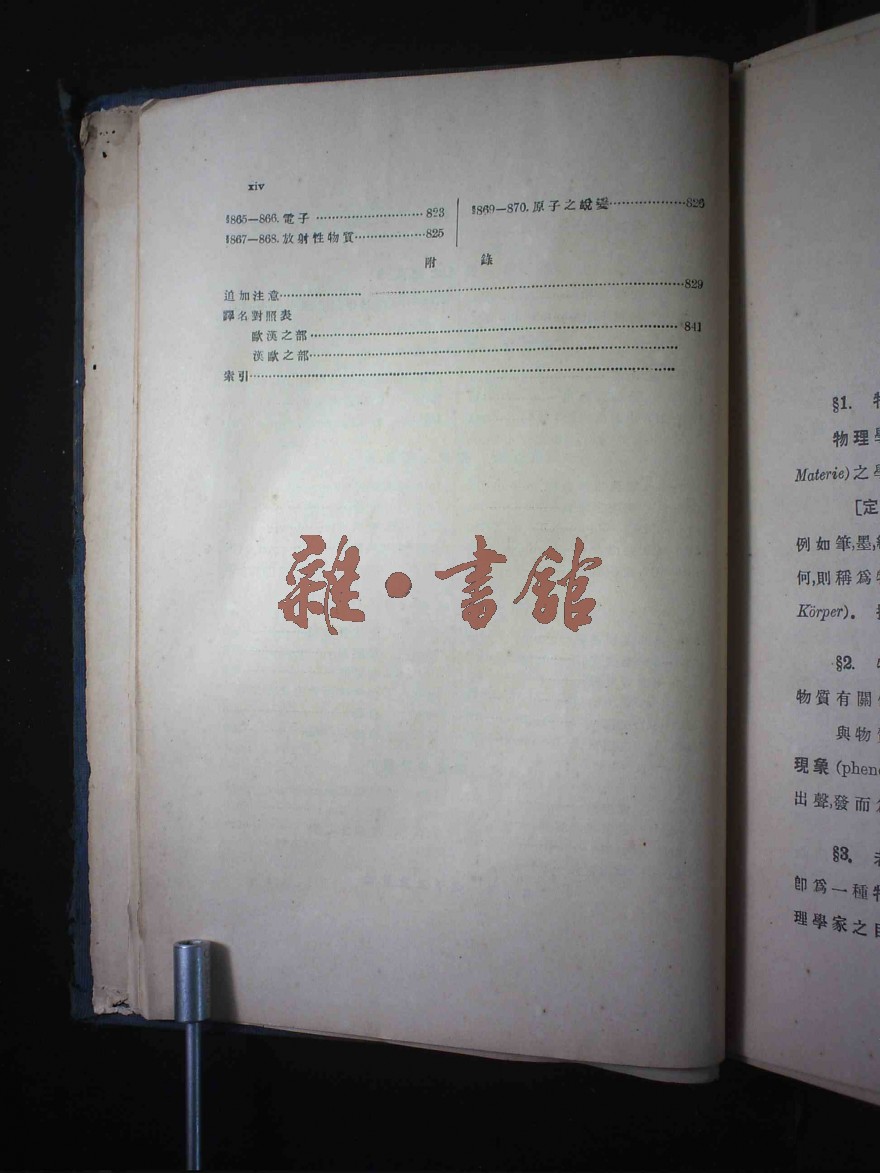 xiv
§865—866. 電子 ……………………… 823
§867—868. 放射性物質 ……………… 825
§869—870. 原子之蛻變 ……………… 826
附錄
追加注意 ……………………… 829
譯名對照表
歐漢之部 ……………………… 841
漢歐之部 ………………………
索引 ………………………
雜·書館
§1.
物理學
Materie)之
[定
例如筆,墨,
何,則稱爲
Körper)。
§2.
物質有關
與物
現象 (phen
出聲,發而
§3.
卽爲一種
理學家之